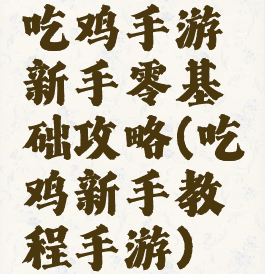 吃鸡手游
新手零基
础攻略(吃
鸡新手教
程手游)